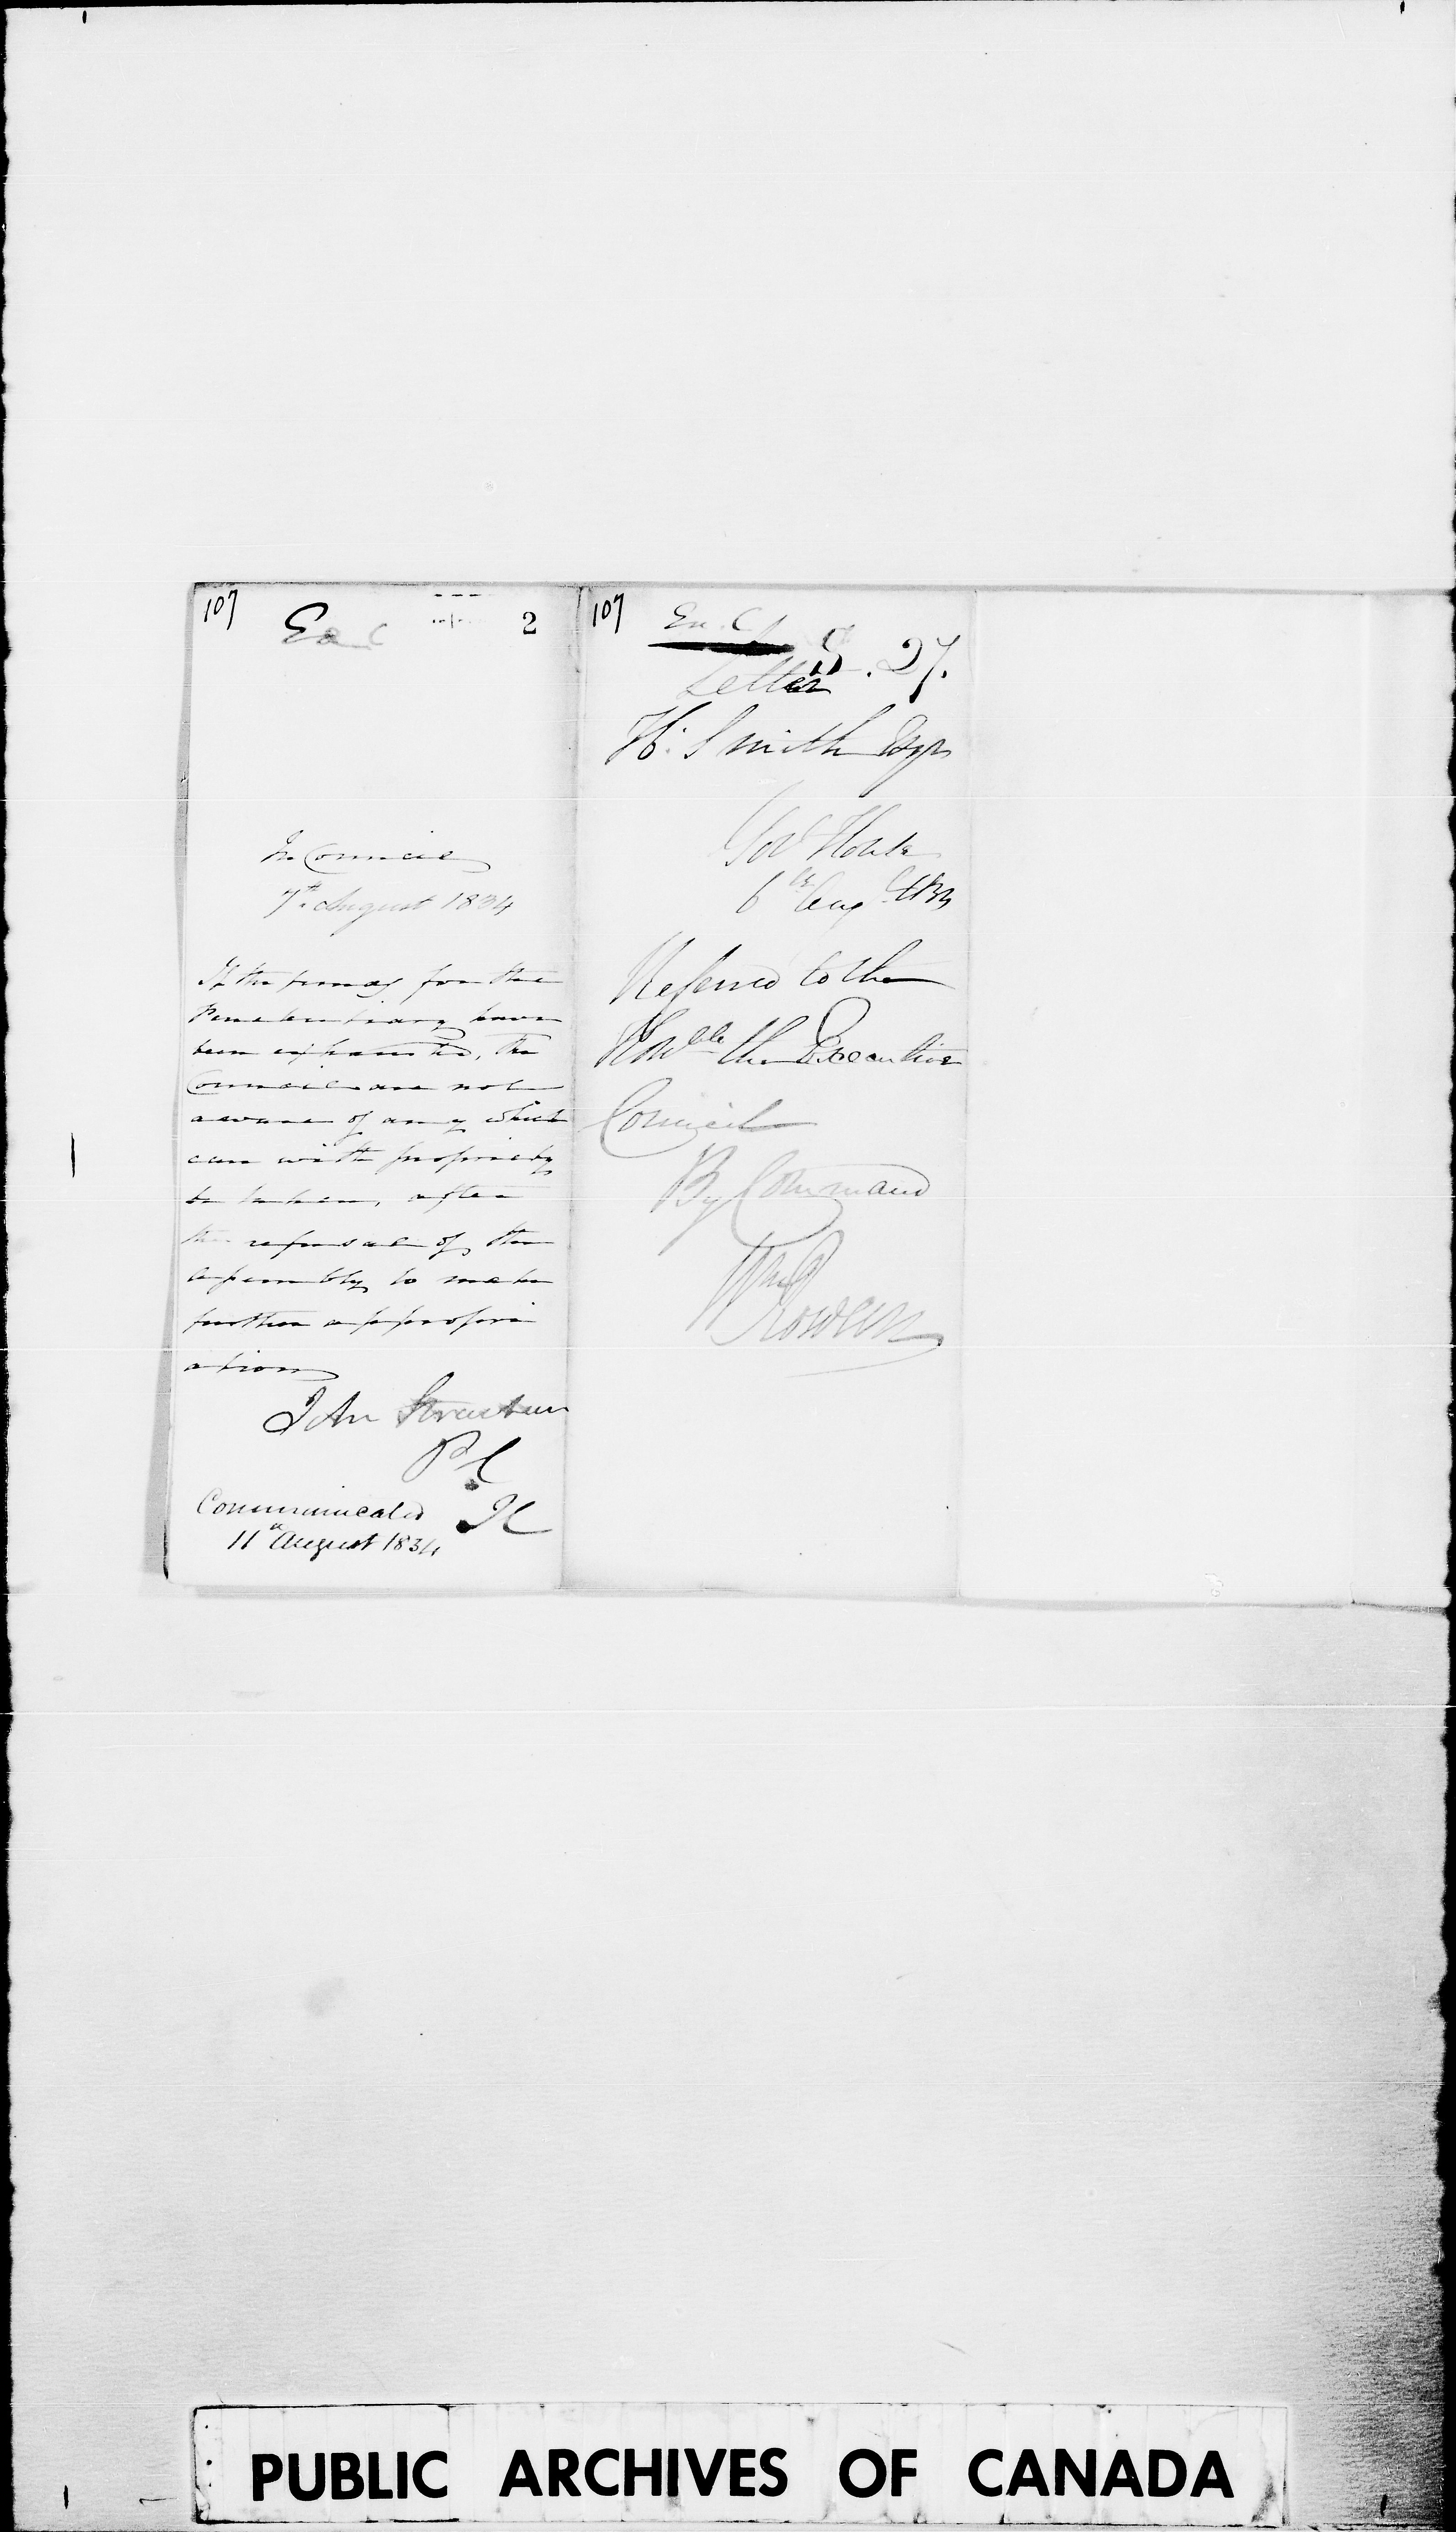 107
Ex. C
2
In Council
7th August 1834
If the funds for the
Penitentiary have
been exhausted, the
Council are not
aware of any which
can with propriety
be taken, after
the refusal of the
assembly to make
further appropri
ation
John Strachan
P C
Communicated
11th August 1834
107
Ex. C
S. 27.
Letter
H. Smith Esqr
Govt House
6th Augt 1834
Referred to the
Honble the Executive
Council
By Command
Wm Rowan
PUBLIC ARCHIVES OF CANADA